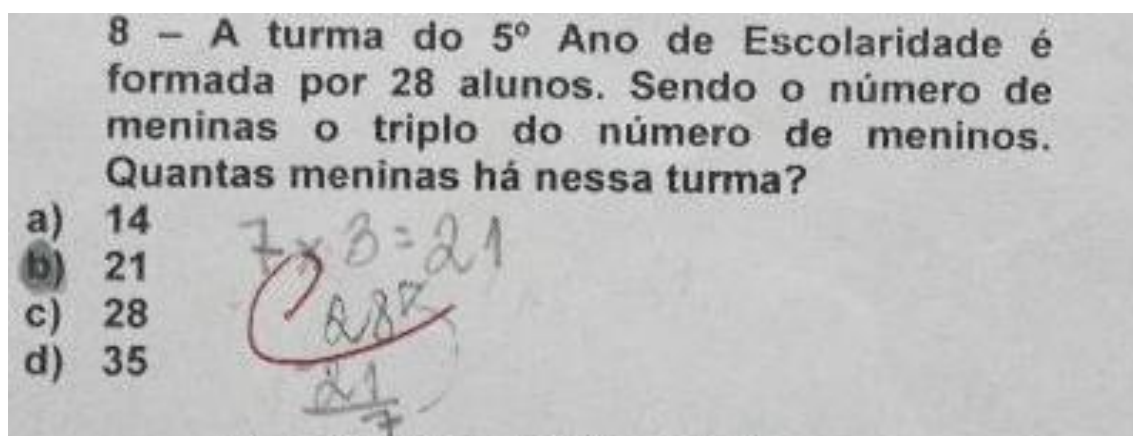 8 – A turma do 5º Ano de Escolaridade é
formada por 28 alunos. Sendo o número de
meninas o triplo do número de meninos.
Quantas meninas há nessa turma?
a) 14
b) 21
c) 28
d) 35
7 x 3 = 21
28
21
7